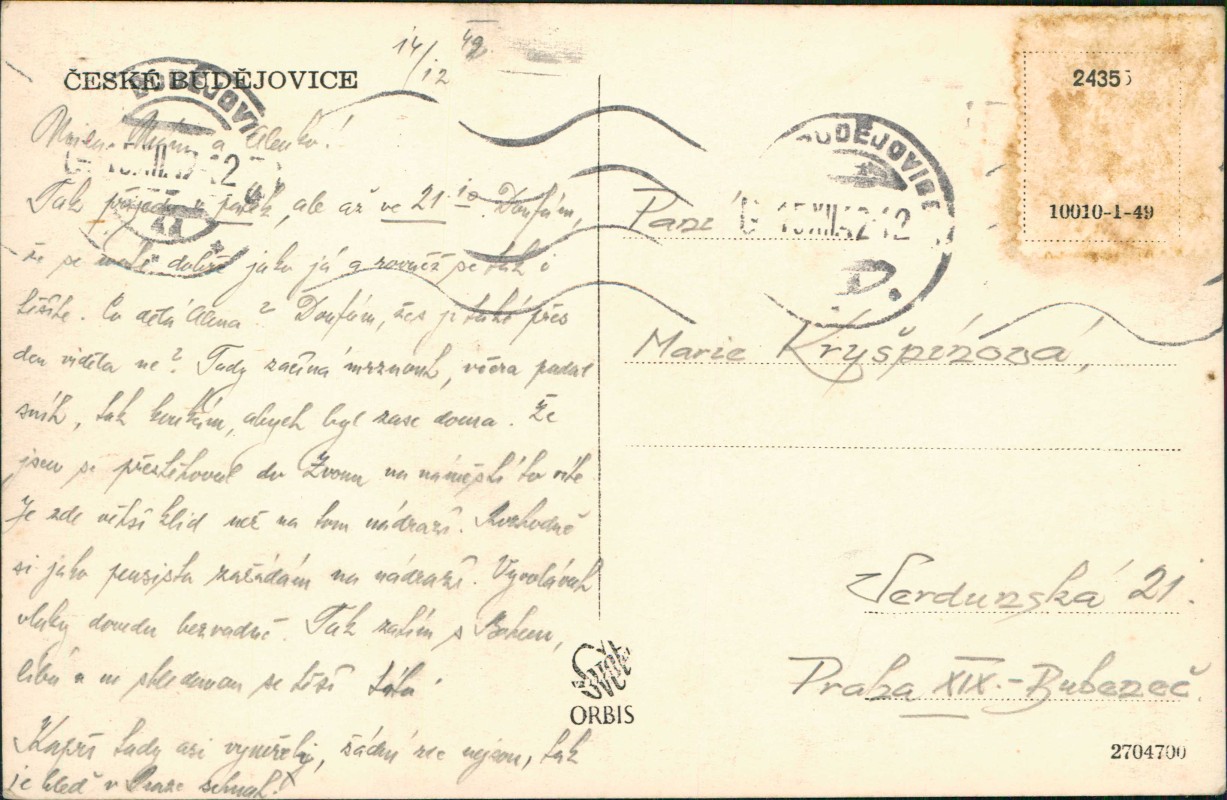 ČESKÉ BUDĚJOVICE
14/12 49.
a Alenko!
Tak přijedu v pátek, ale až ve 21 10. Doufám,
že se máte dobře jako já a rovněž se tak i
těšíte. Co dělá Alena? Doufám, žes ji také přes
den viděla ne? Tady začíná mrznout, včera padal
sníh, tak koukám, abych byl zase doma. Že
jsem se přestěhoval do Zvonu na náměstí to víte
Je zde větší klid než na tom nádraží. Rozhodně
si jako pensista zažádám na nádraží. Vyvolávat
vlaky dovedu bezvadně. Tak zatím s Bohem,
líbá a na shledanou se těší táta
Kapři tady asi vymřeli, žádní zde nejsou, tak
je hleď v Praze sehnat.
BUDĚJOVICE
15.XII.4 12
Svět
ORBIS
BUDĚJOVICE
15.XII.4 12
24355
10010-1-49
Paní
Marie Kryšpínová,
Verdunská 21.
Praha XIX.-Bubeneč.
2704700